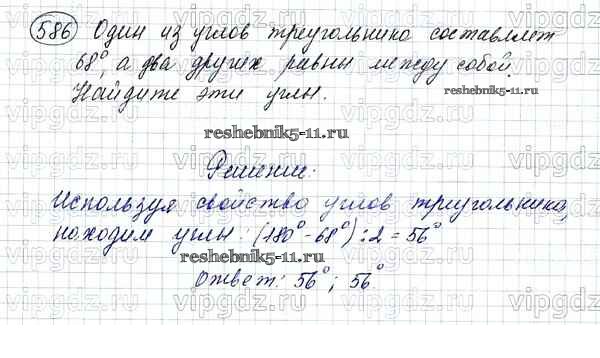 586 Один из углов треугольника составляет
68°, а два других равны между собой.
Найдите эти углы.
reshebnik5-11.ru
reshebnik5-11.ru
Решение:
Используя свойство углов триугольника,
находим углы: (180° - 68°) : 2 = 56°
reshebnik5-11.ru
Ответ: 56°; 56°
vipgdz.ru